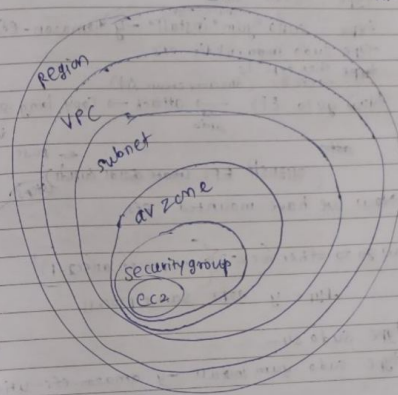 region
VPC
subnet
av zone
security group
ec2